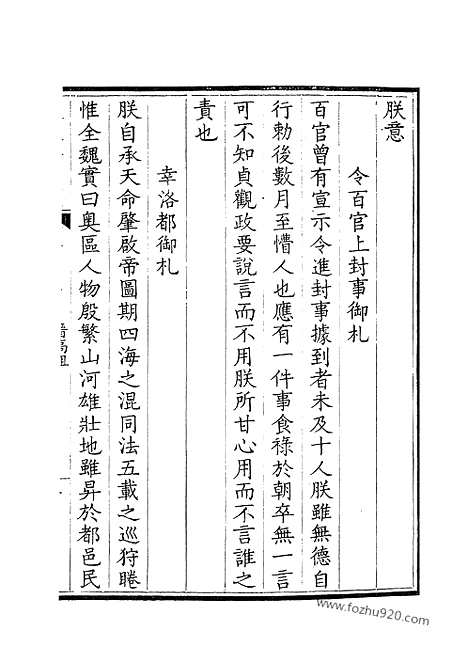 朕意
令百官上封事御札
百官曾有宣示令進封事據到者未及十人朕雖無德自
行勅後數月至懵人也應有一件事食祿於朝卒無一言
可不知貞觀政要說言而不用朕所甘心用而不言誰之
責也
幸洛都御札
朕自承天命肇啟帝圖期四海之混同法五載之巡狩睠
惟全魏實曰奥區人物殷繁山河雄壯地雖昇於都邑民
www.fozhu920.com